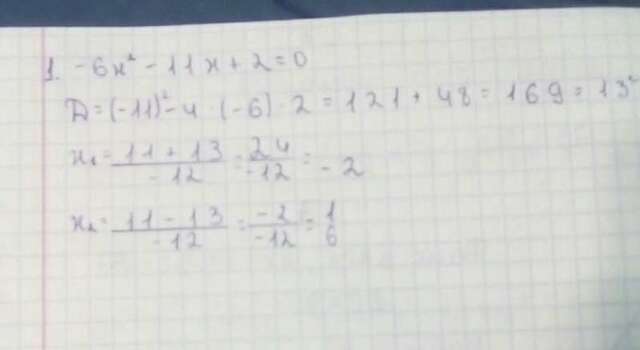 1. -6x² - 11x + 2 = 0
D = (-11)² - 4 · (-6) · 2 = 121 + 48 = 169 = 13²
x₁ = (11 + 13)/(-12) = 24/(-12) = -2
x₂ = (11 - 13)/(-12) = (-2)/(-12) = 1/6